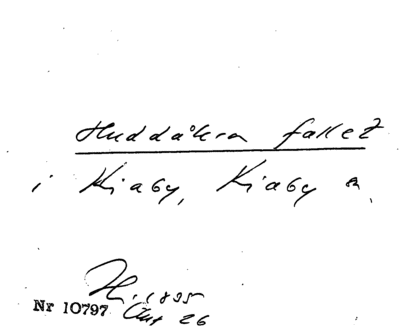 Huddåkra fallet
i Kiaby, Kiaby s.
Hi. 1895
Nr 10797 Aug 26